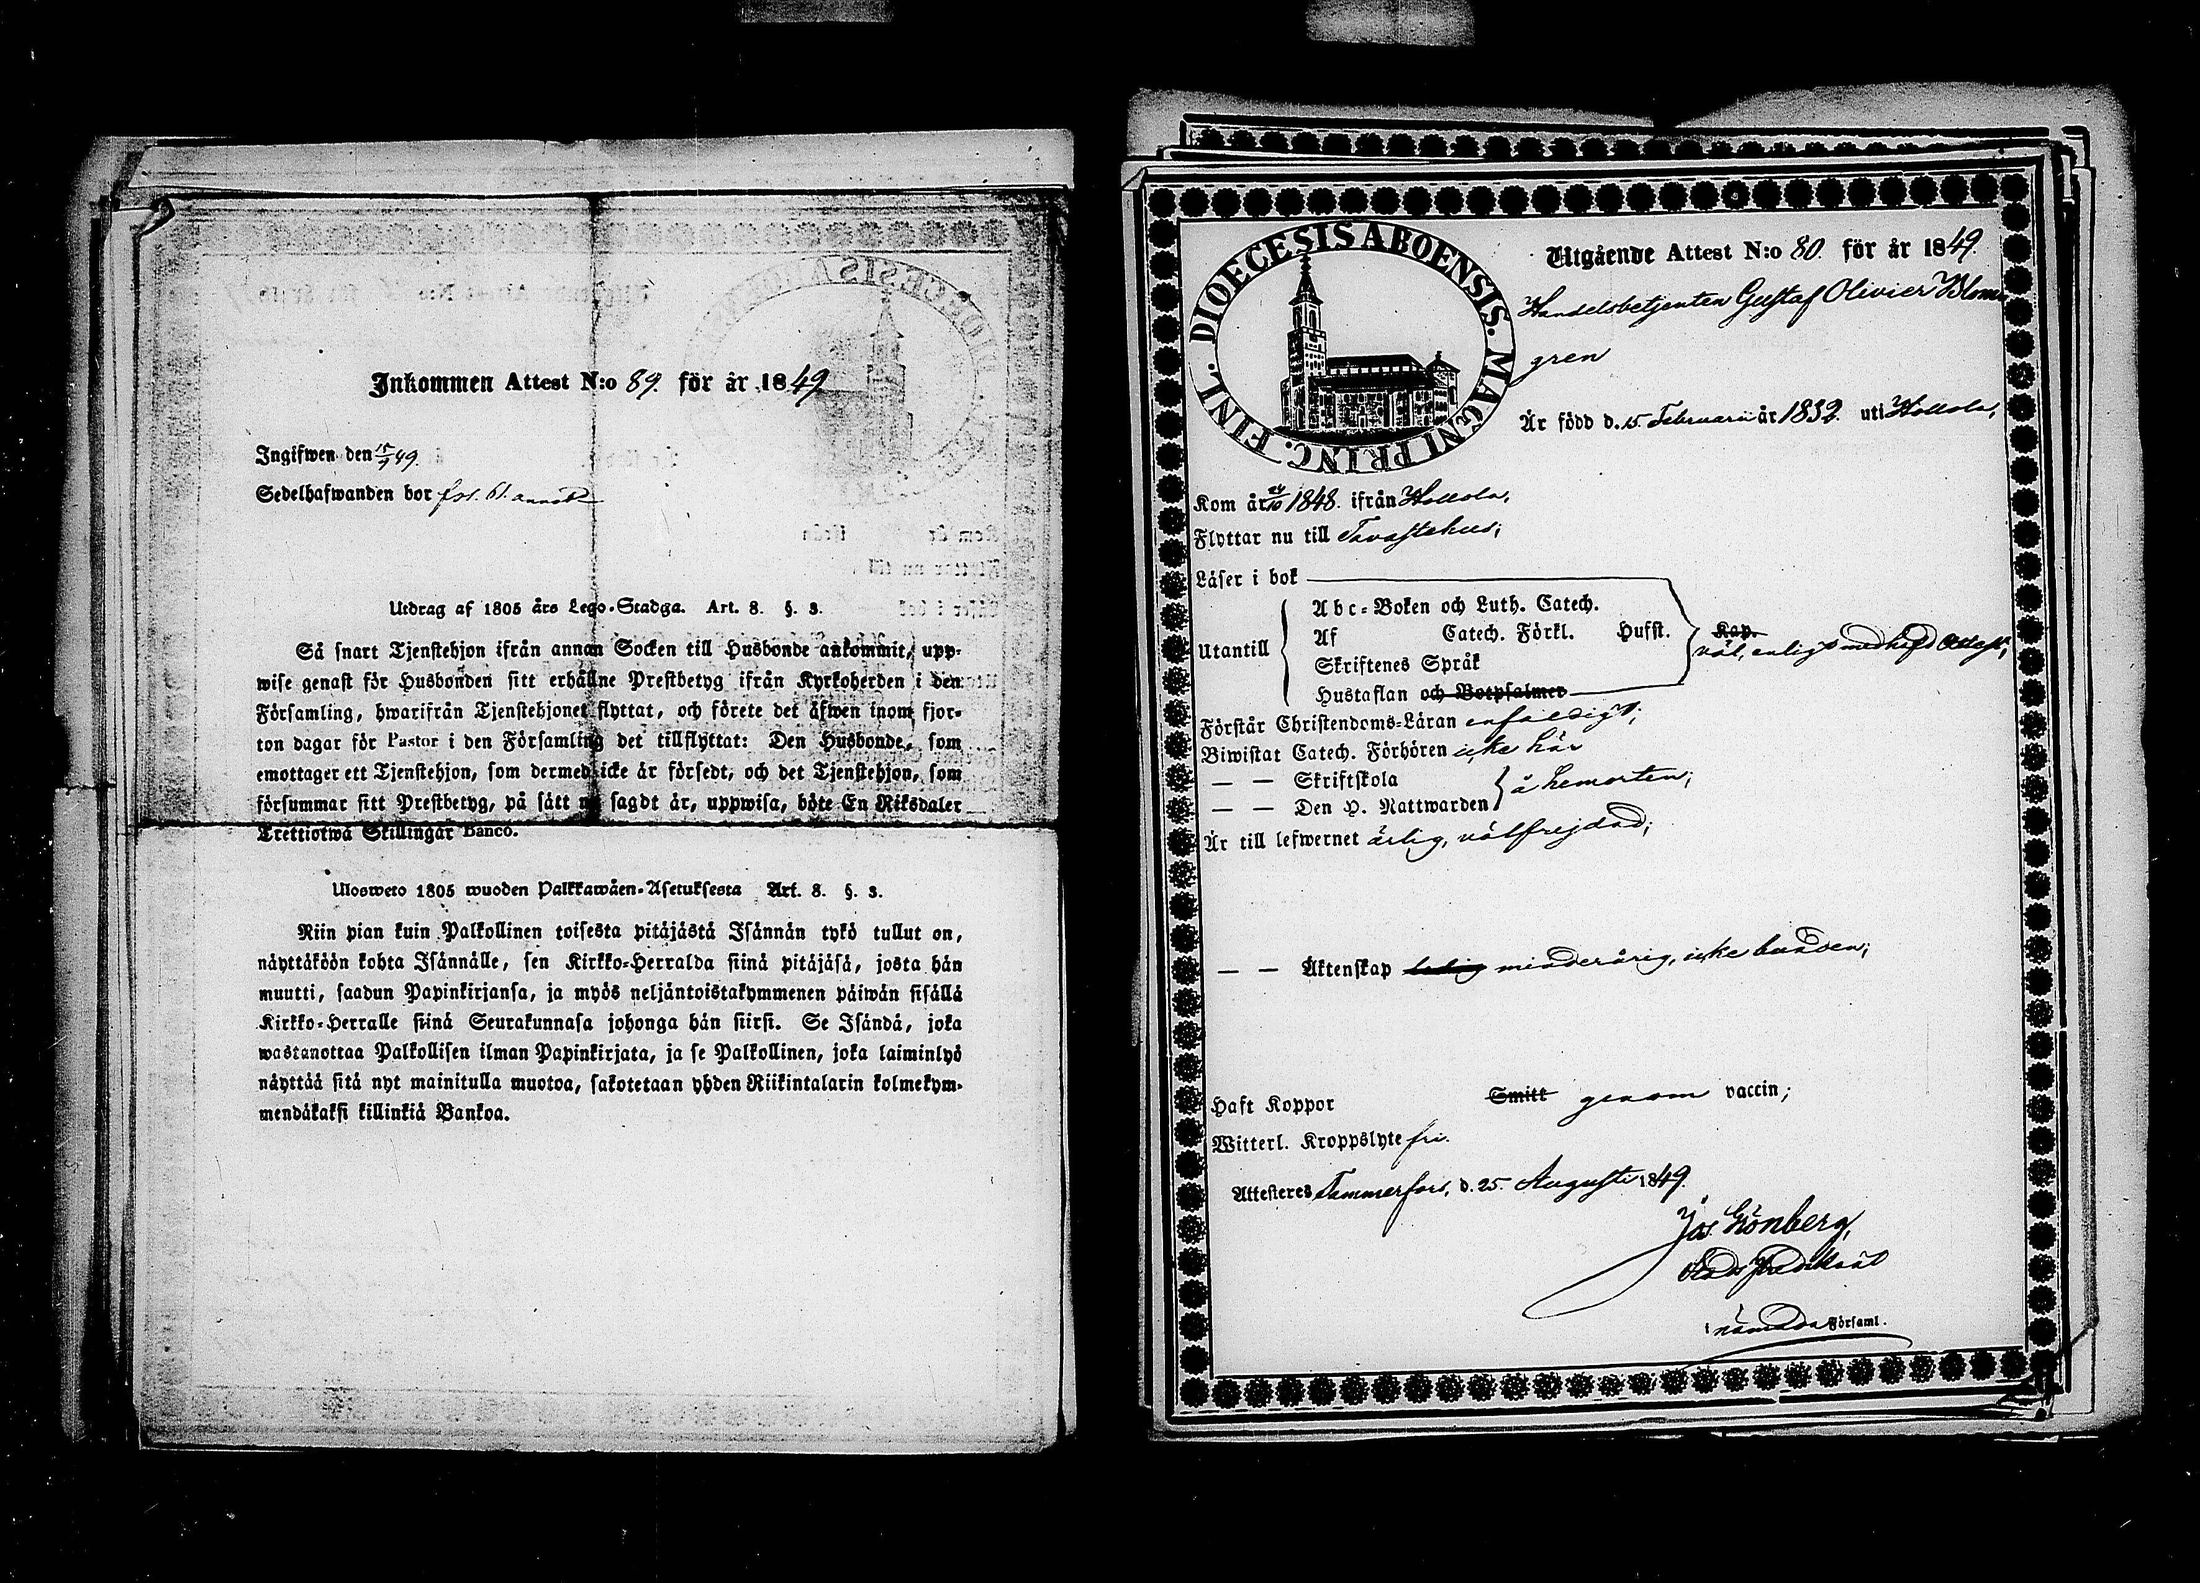 Inkommen Attest N:o 89. för år 1849
Ingifwen den 15/9 49.
Sedelhafwanden bor fol. 61.
Utdrag af 1805 års Lego-Stadga. Art. 8. §. 3.
Så snart Tjenstehjon ifrån annan Socken till Husbonde ankommit, upp-
wise genast för Husbonden sitt erhållne Prestbetyg ifrån Kyrkoherden i den
Församling, hwarifrån Tjenstehjonet flyttat, och förete det äfwen inom fjor-
ton dagar för Pastor i den Församling det tillflyttat: Den Husbonde, som
emottager ett Tjenstehjon, som dermed icke är försedt, och det Tjenstehjon, som
försummar sitt Prestbetyg, på sätt nu sagdt är, uppwisa, böte En Riksdaler
Trettiotwå Skillingar Banco.
Ulosweto 1805 wuoden Palkkawäen-Asetuksesta Art. 8. §. 3.
Niin pian kuin Palkollinen toisesta pitäjästä Isännän tykö tullut on,
näyttäköön kohta Isännälle, sen Kirkko-Herralda siinä pitäjäsä, josta hän
muutti, saadun Papinkirjansa, ja myös neljäntoistakymmenen päiwän sisällä
Kirkko-Herralle siinä Seurakunnasa johonga hän siirsi. Se Isändä, joka
wastanottaa Palkollisen ilman Papinkirjata, ja se Palkollinen, joka laiminlyö
näyttää sitä nyt mainitulla muotoa, sakotetaan yhden Riikintalarin kolmekym-
mendäkaksi killinkiä Bankoa.
DIOECESIS ABOENSIS. MAGNI PRINC. FINL.
Utgående Attest N:o 80. för år 1849.
Handelsbetjenten Gustaf Olivier Blom-
gren
Är född d. 15. Februarii år 1832. uti Hollola,
Kom år 24/10 1848. ifrån Hollola,
Flyttar nu till Tavastehus;
Läser i bok
Utantill
Abc-Boken och Luth. Catech.
Af Catech. Förkl. Hufst. Kap.
Skriftenes Språk
Hustaflan och Botpsalmer
väl, enligt medhafd Attest;
Förstår Christendoms-Läran enfaldigt;
Biwistat Catech. Förhören icke här
— — Skriftskola
— — Den H. Nattwarden
å hemorten;
Är till lefwernet ärlig, välfrejdad;
— — Äktenskap ledig minderårig, icke bunden;
Haft Koppor Smitt genom vaccin;
Witterl. Kroppslyte fri.
Attesteres Tammerfors, d. 25. Augusti 1849.
Jos. Grönberg,
i nämnda Församl.